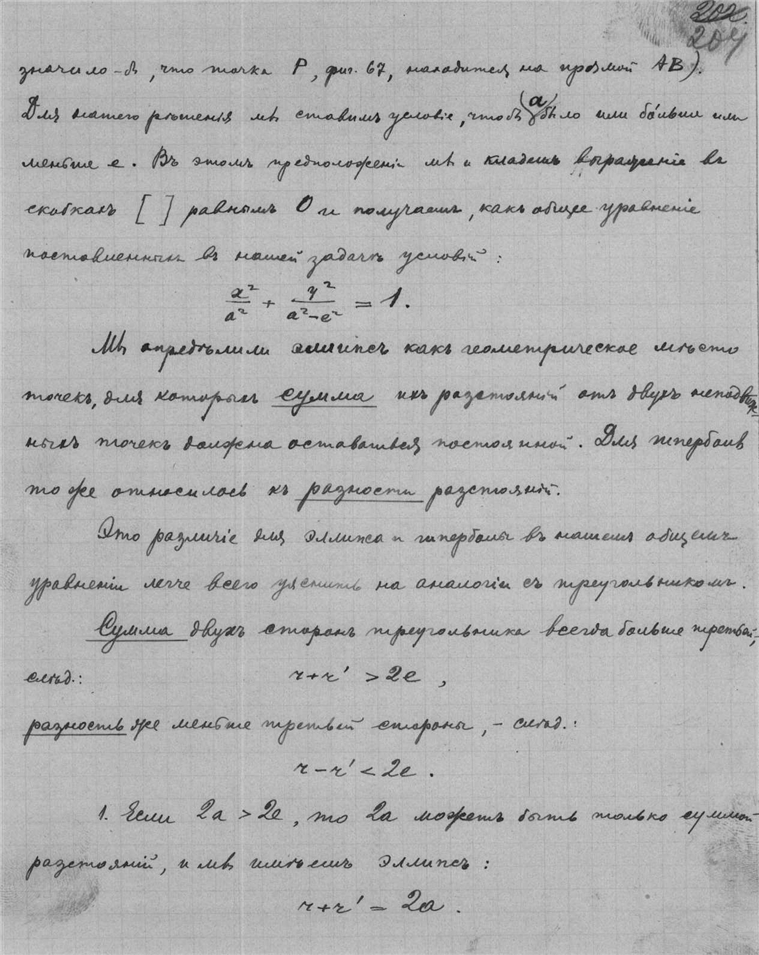 202.
204
значило-бъ, что точка P, фиг. 67, находится на прямой AB).
Для нашего рѣшенія мы ставимъ условіе, чтобъ a было или больше или
меньше e. Въ этомъ предположеніи мы и кладемъ выраженіе въ
скобкахъ [ ] равнымъ 0 и получаемъ, какъ общее уравненіе
поставленныхъ въ нашей задачѣ условій:
x²/a² + y²/a²−e² = 1.
Мы опредѣлили эллипсъ какъ геометрическое мѣсто
точекъ, для которыхъ сумма ихъ разстояній отъ двухъ неподвиж-
ныхъ точекъ должна оставаться постоянной. Для гиперболы
то же относилось къ разности разстояній.
Это различіе для эллипса и гиперболы въ нашемъ общемъ
уравненіи легче всего уяснить на аналогіи съ треугольникомъ.
Сумма двухъ сторонъ треугольника всегда больше третьей,
слѣд.: r+r' > 2e,
разность же меньше третьей стороны, – слѣд.:
r−r' < 2e.
1. Если 2a > 2e, то 2a можетъ быть только суммой
разстояній, и мы имѣемъ эллипсъ:
r+r' = 2a.